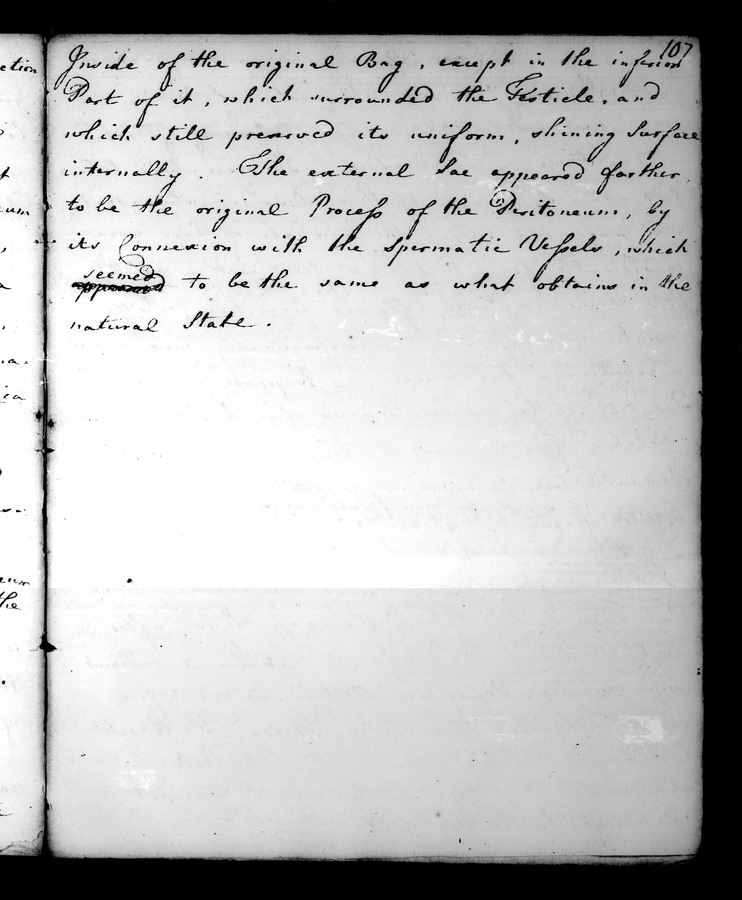 107
Inside of the original Bag, except in the inferiour
Part of it, which surrounded the Testicle, and
which still preserved its uniform, shining Surface
internally. The external Sac appeared farther
to be the original Process of the Peritoneum, by
its Connexion with the spermatic Vessels, which
seemed
appeared to be the same as what obtains in the
natural State.